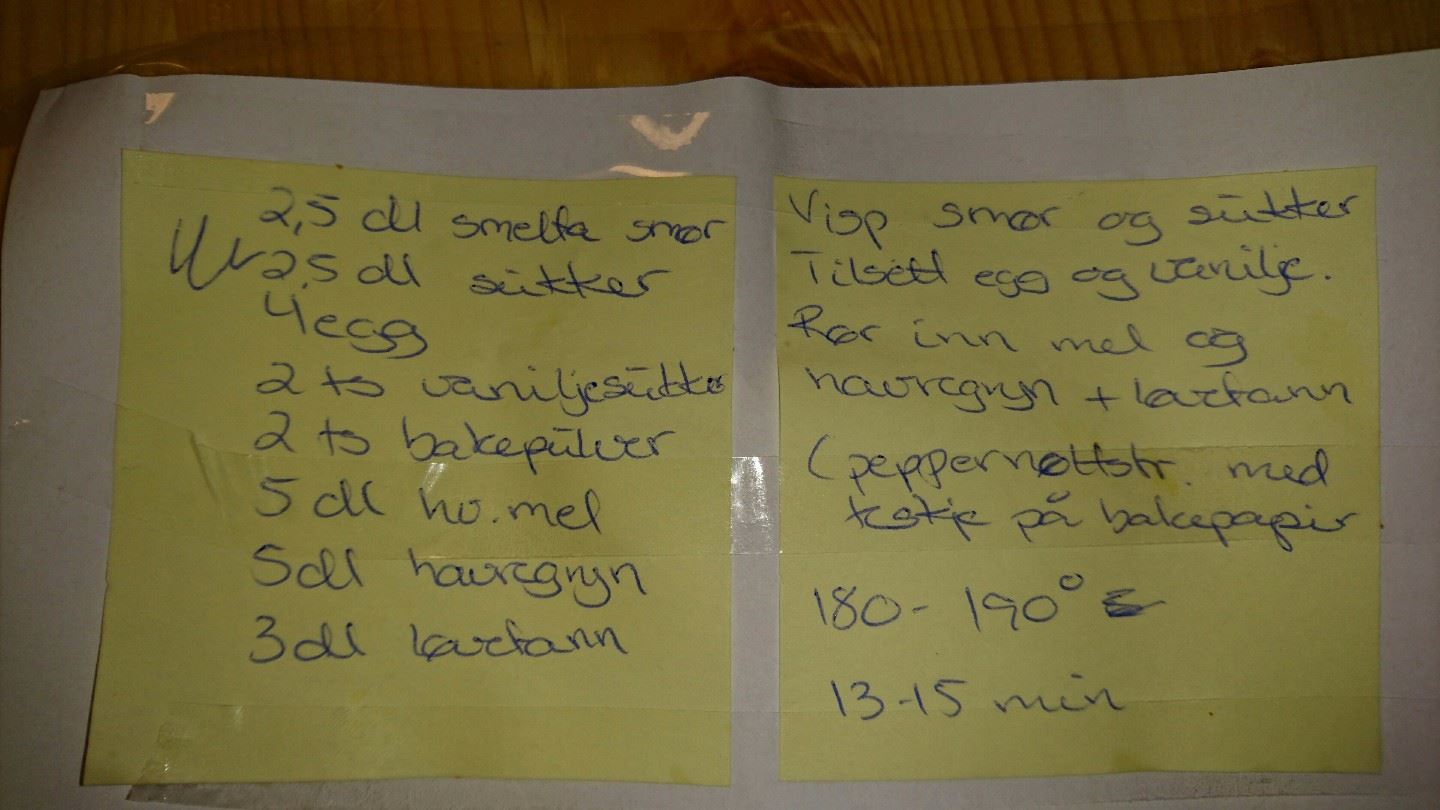 2,5 dl smelta smør
2,5 dl sukker
4 egg
2 ts vaniljesukker
2 ts bakepulver
5 dl hv. mel
5 dl havregryn
3 dl
Visp smør og sukker
Tilsett egg og vanilje.
Rør inn mel og
havregryn +
(peppernøttstr. med
teskje på bakepapir
180-190°
13-15 min